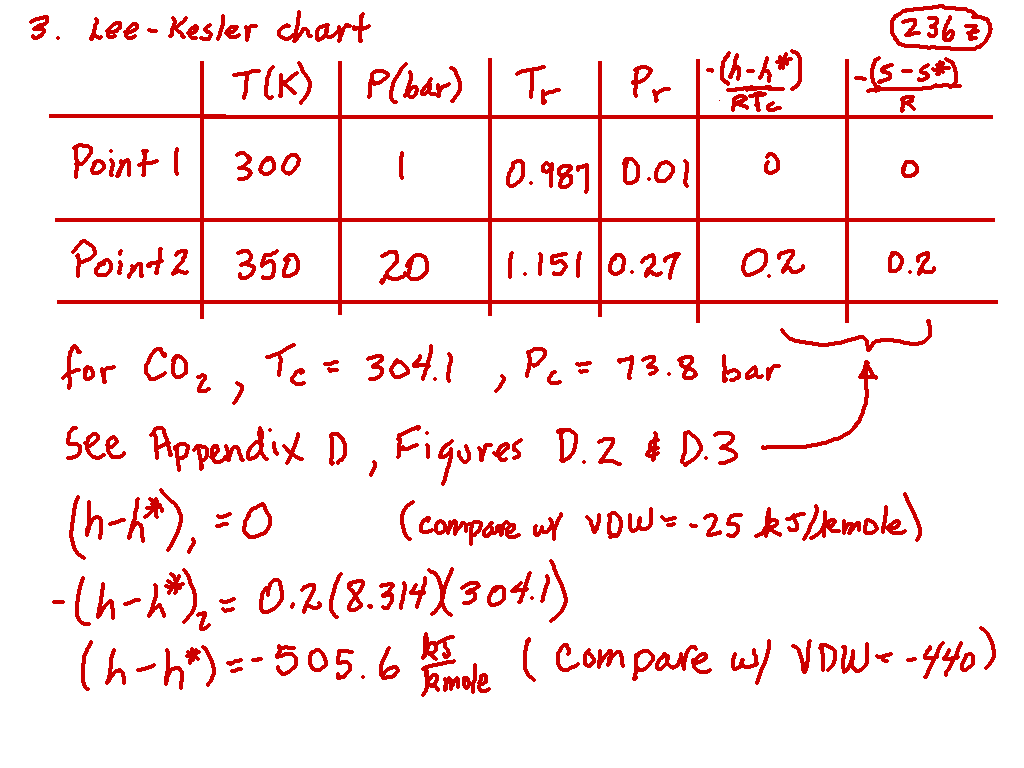 3. Lee-Kesler chart 236 z
T(K) P(bar) Tr Pr -(h-h*)/RTc -(s-s*)/R
Point 1 300 1 0.987 0.01 0 0
Point 2 350 20 1.151 0.27 0.2 0.2
for CO₂, Tc = 304.1, Pc = 73.8 bar
See Appendix D, Figures D.2 & D.3
(h-h*)₁ = 0 (compare w/ VDW = -25 kJ/kmole)
-(h-h*)₂ = 0.2(8.314)(304.1)
(h-h*) = -505.6 kJ/kmole (compare w/ VDW = -440)